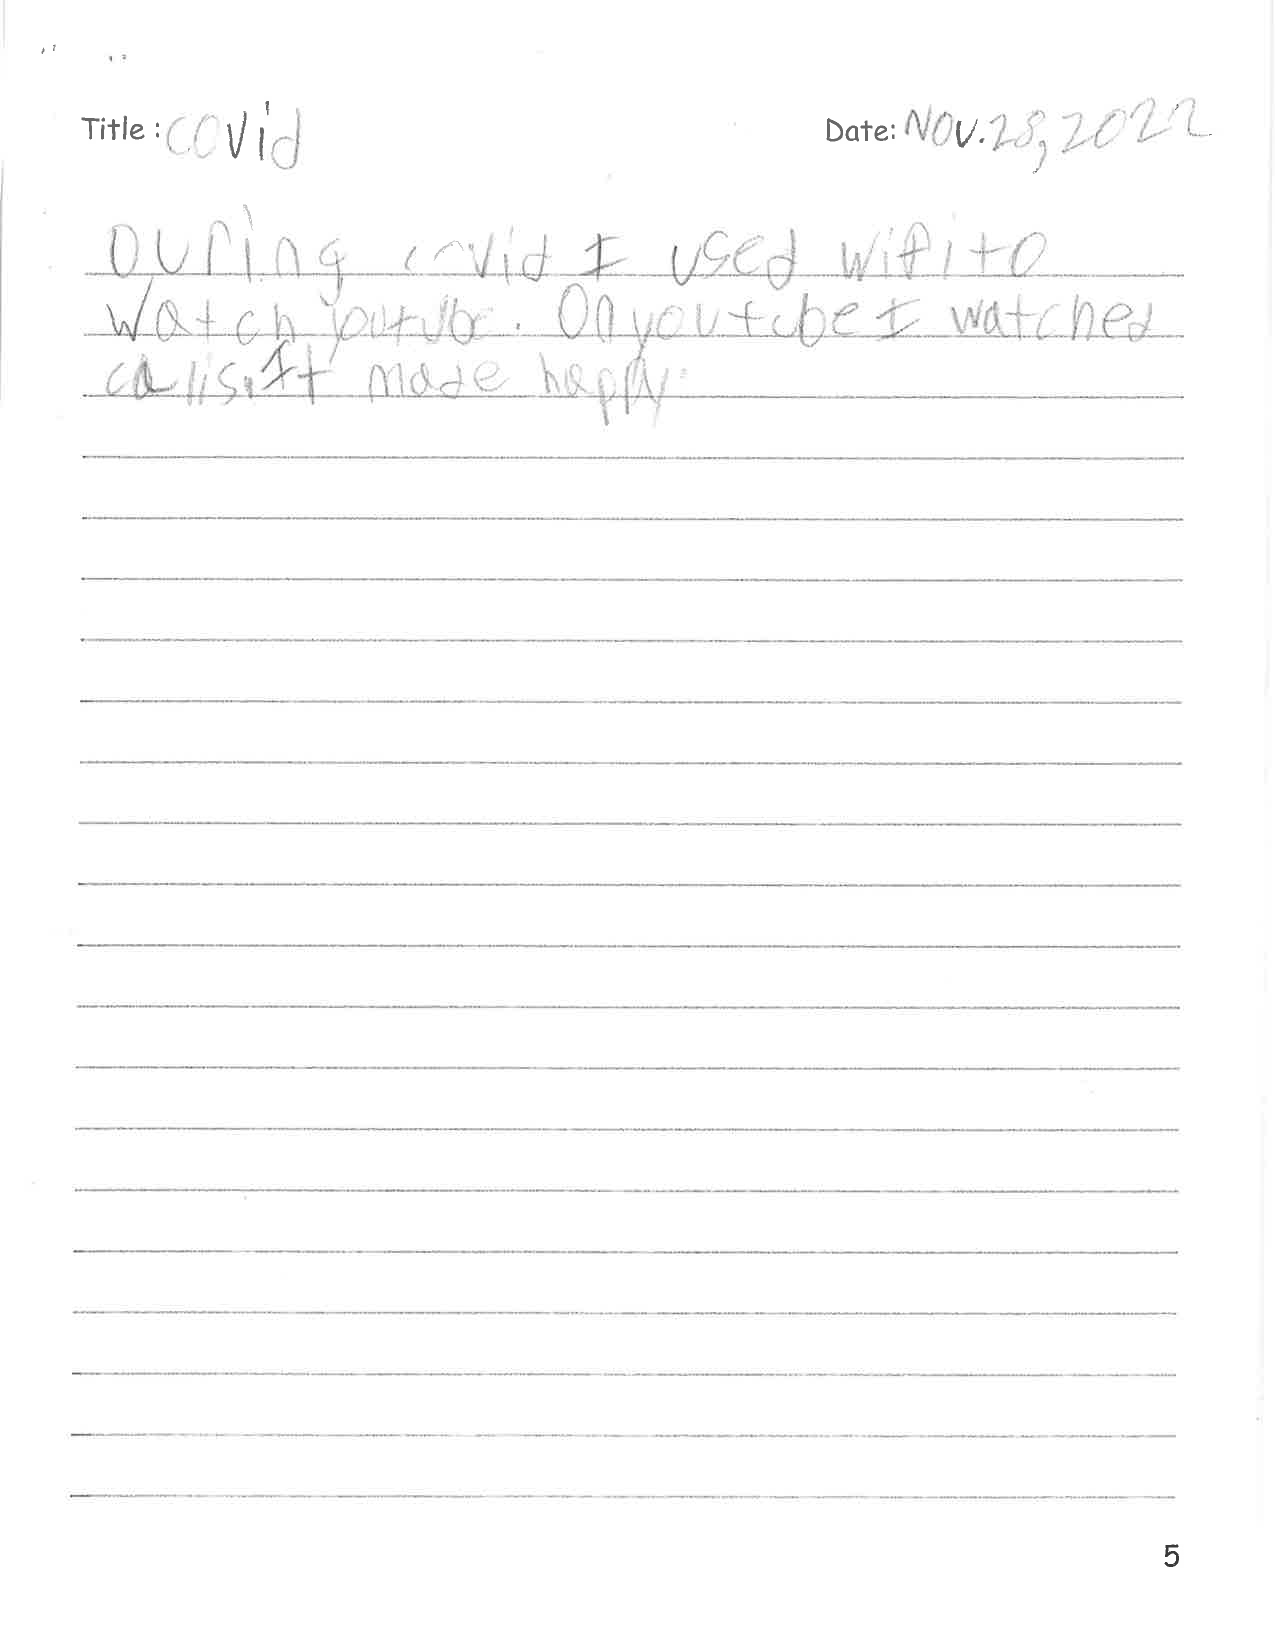 Title: covid
Date: Nov. 28, 2022
During covid I used wifi to
Watch youtube. On youtube I watched
callis. It made happy.
5